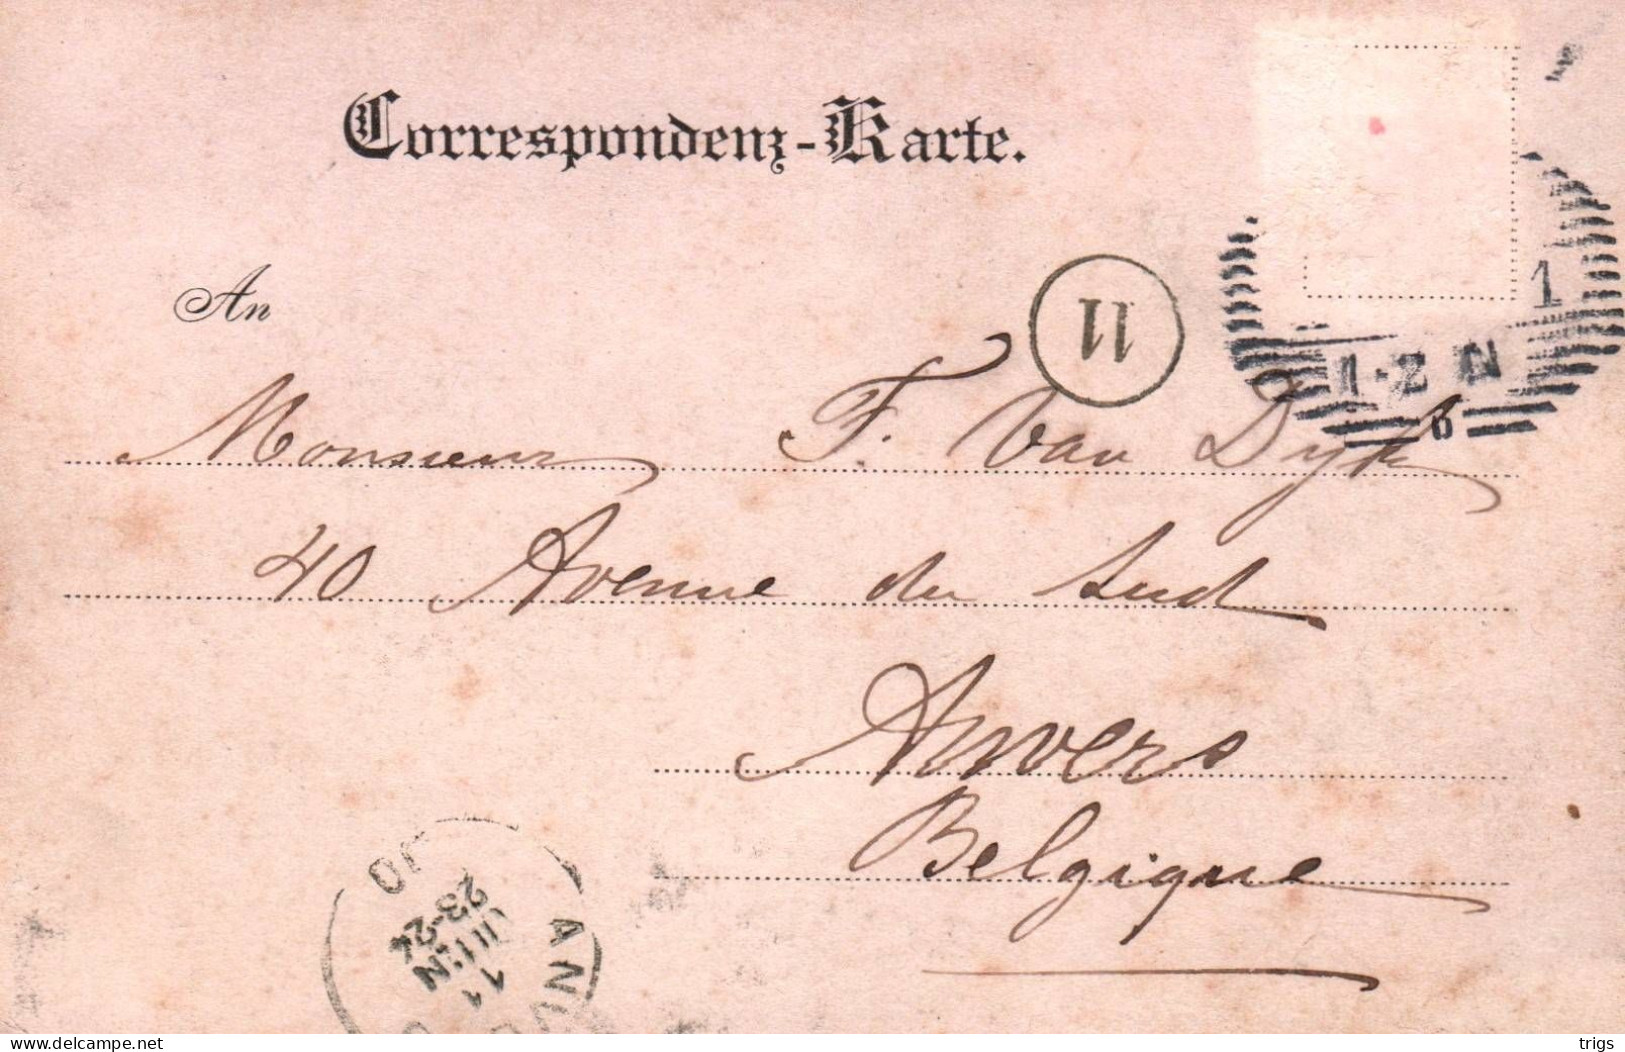 Correspondenz-Karte.
An
11
1
1-2 N
6
Monsieur F. Van Dyk
40 Avenue du Sud
Anvers
Belgique
ANV
11
JUIN
23-24
trigs
delcampe.net